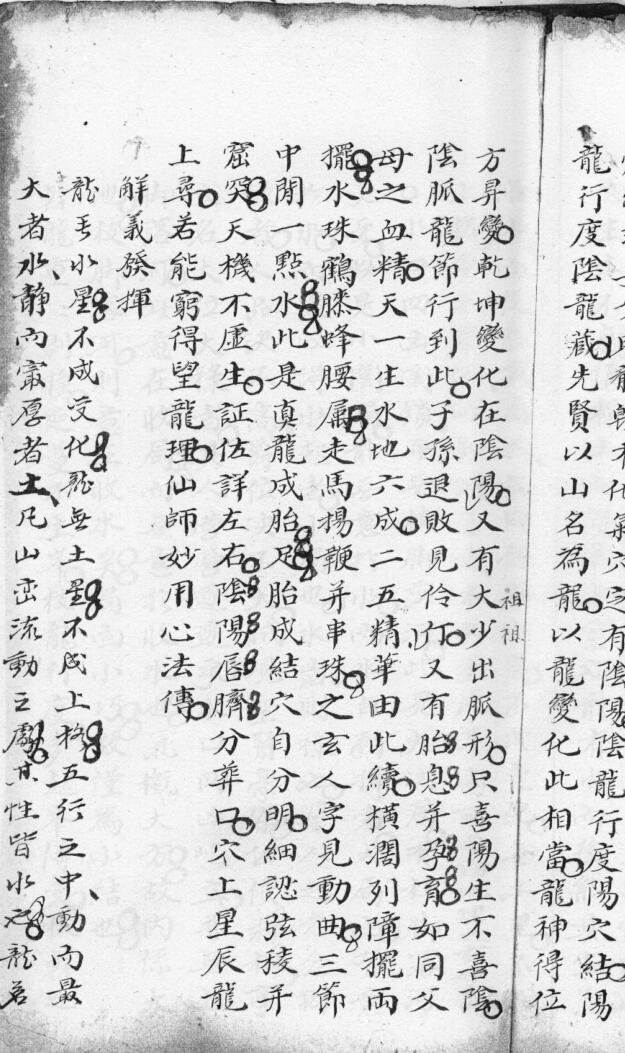 龍朝有化氣穴定有陰陽陰龍行度陽穴結陽
龍行度陰龍藏先賢以山名為龍以龍變化此相當龍神得位
方昇變乾坤變化在陰陽又有大少祖祖出脈形只喜陽生不喜陰
陰脈龍節行到此子孫退敗見伶仃又有胎息并孕育如同父
母之血精天一生水地六成二五精華由此續橫濶列障擺兩
擺水珠鶴膝蜂腰屬走馬揚鞭并串珠之玄人字見動曲三節
中閒一點水此是真龍成胎足胎成結穴自分明細認弦稜并
窟突天機不虛生証佐詳左右陰陽唇臍分葬口穴上星辰龍
上尋若能窮得望龍理仙師妙用心法傳
解義發揮
龍香水星不成受化龍無土星不成上格五行之中動而最
大者水靜而富厚者土凡山巒流動之處其性皆水也龍名